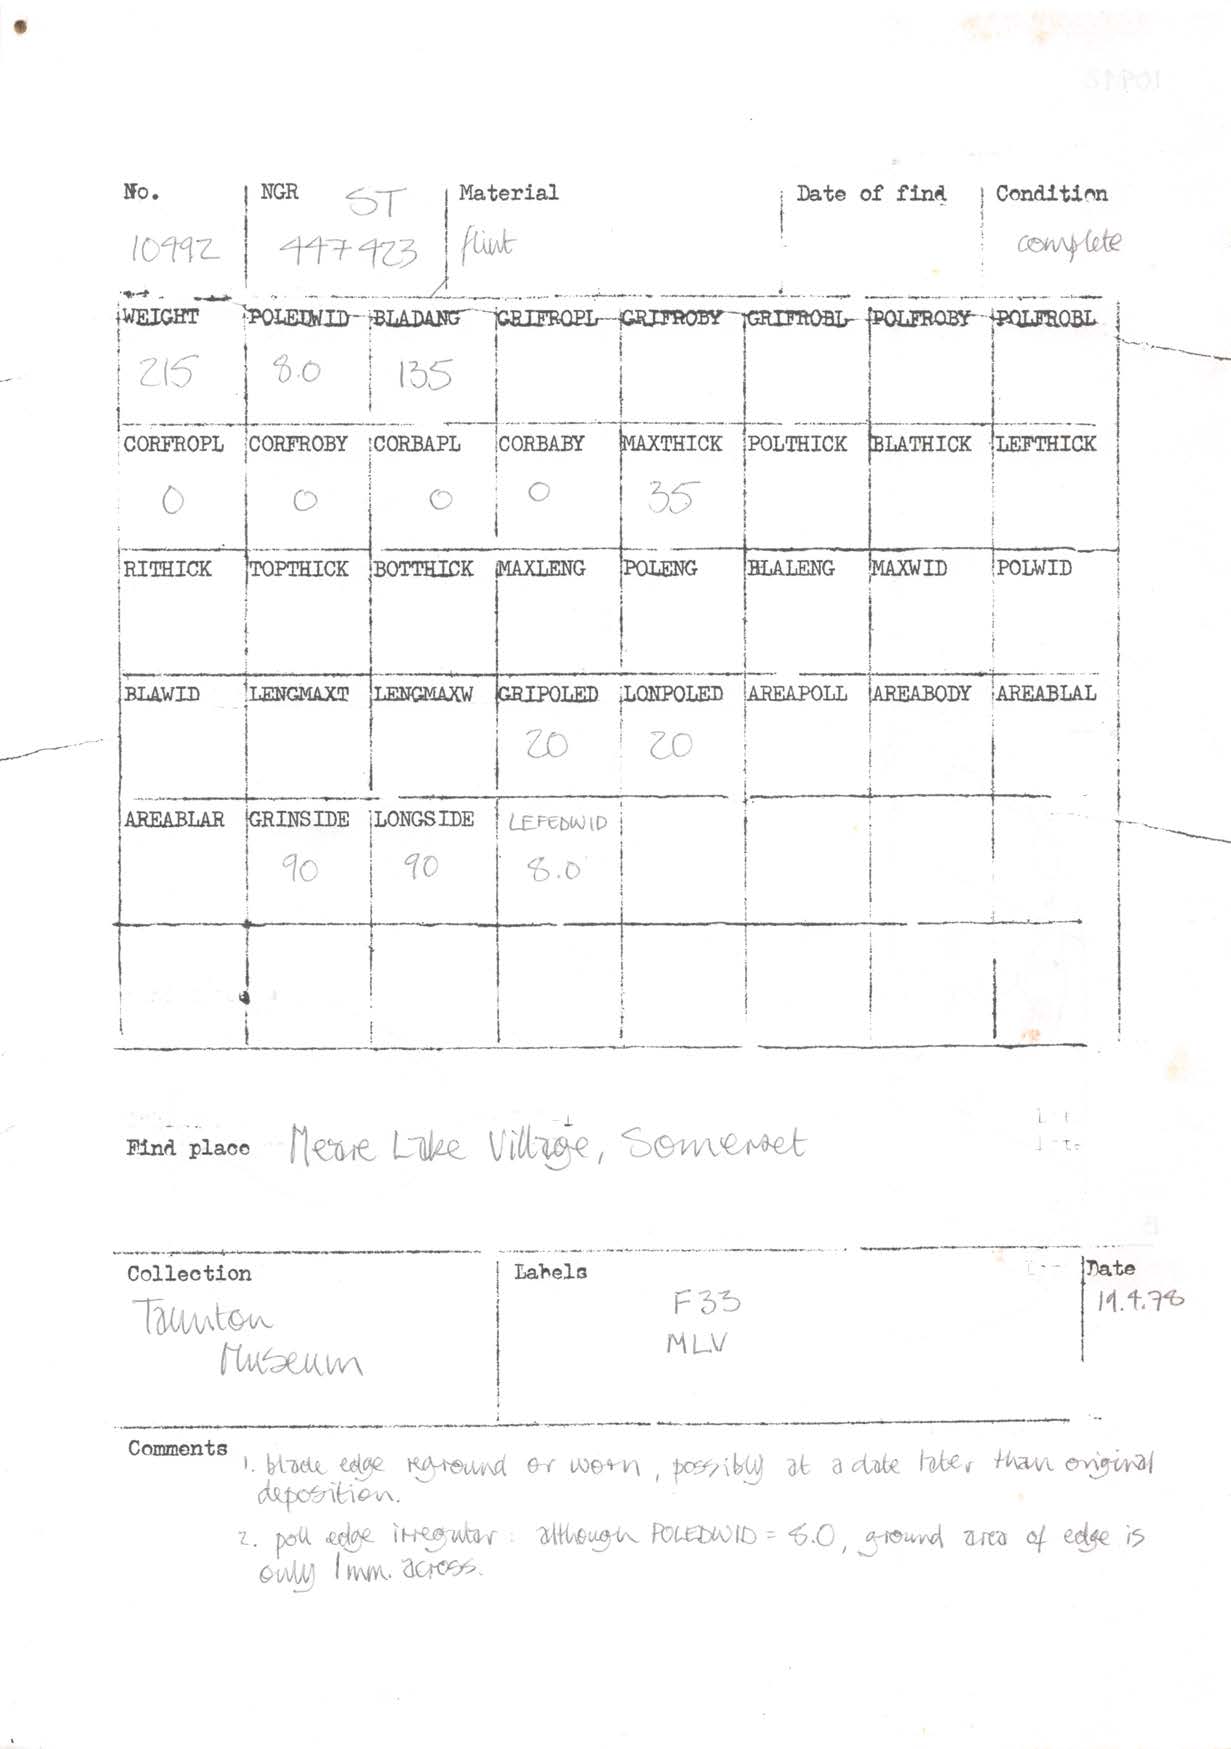 No. NGR ST Material Date of find Condition
10992 447423 flint complete
WEIGHT POLEDWID BLADANG GRIFROPL GRIFROBY GRIFROBL POLFROBY POLFROBL
215 8.0 135
CORFROPL CORFROBY CORBAPL CORBABY MAXTHICK POLTHICK BLATHICK LEFTHICK
0 0 0 0 35
RITHICK TOPTHICK BOTTHICK MAXLENG POLENG BLALENG MAXWID POLWID
BLAWID LENGMAXT LENGMAXW GRIPOLED LONPOLED AREAPOLL AREABODY AREABLAL
20 20
AREABLAR GRINSIDE LONGSIDE LEFEDWID
90 90 8.0
Find place Meare Lake Village, Somerset
Collection Labels Date
Taunton F33 19.4.78
Museum MLV
Comments 1. blade edge reground or worn, possibly at a date later than original
deposition.
2. poll edge irregular: although POLEDWID = 8.0, ground area of edge is
only 1mm. across.